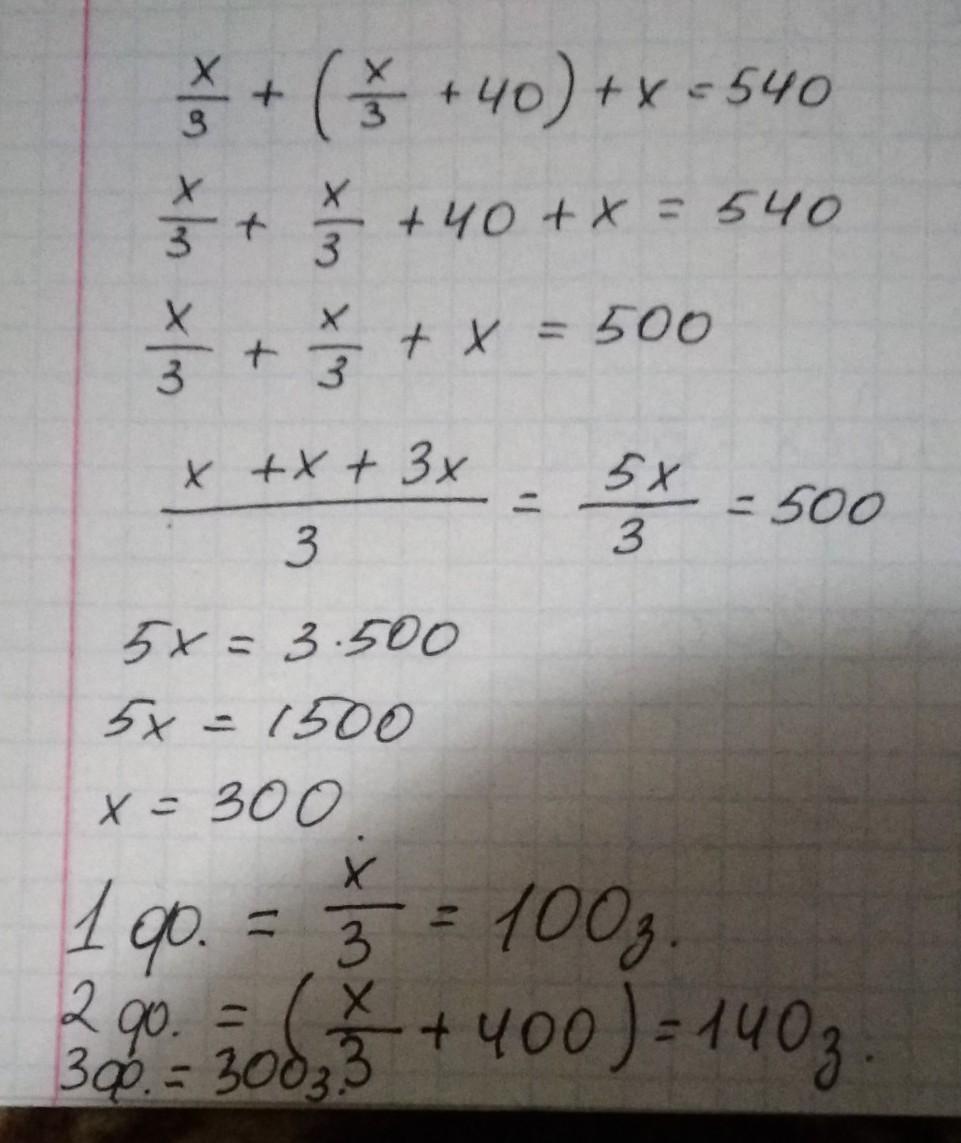 x/3 + (x/3 + 40) + x = 540
x/3 + x/3 + 40 + x = 540
x/3 + x/3 + x = 500
(x + x + 3x)/3 = 5x/3 = 500
5x = 3·500
5x = 1500
x = 300.
1 ф. = x/3 = 100г.
2 ф. = (x/3 + 400) = 140г.
3ф. = 300г.